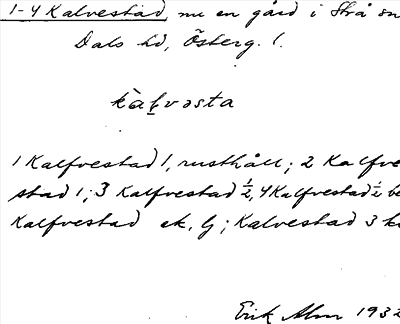 1-4 Kalvestad, nu en gård i Strå sn
Dals hd, Österg. l.
kàl̬vəsta
1 Kalfvestad 1, rusthåll; 2 Kalfve
stad 1; 3 Kalfvestad ½, 4 Kalfvestad ½ be
Kalfvestad ek, Lj; Kalvestad 3
Erik Alm 1932